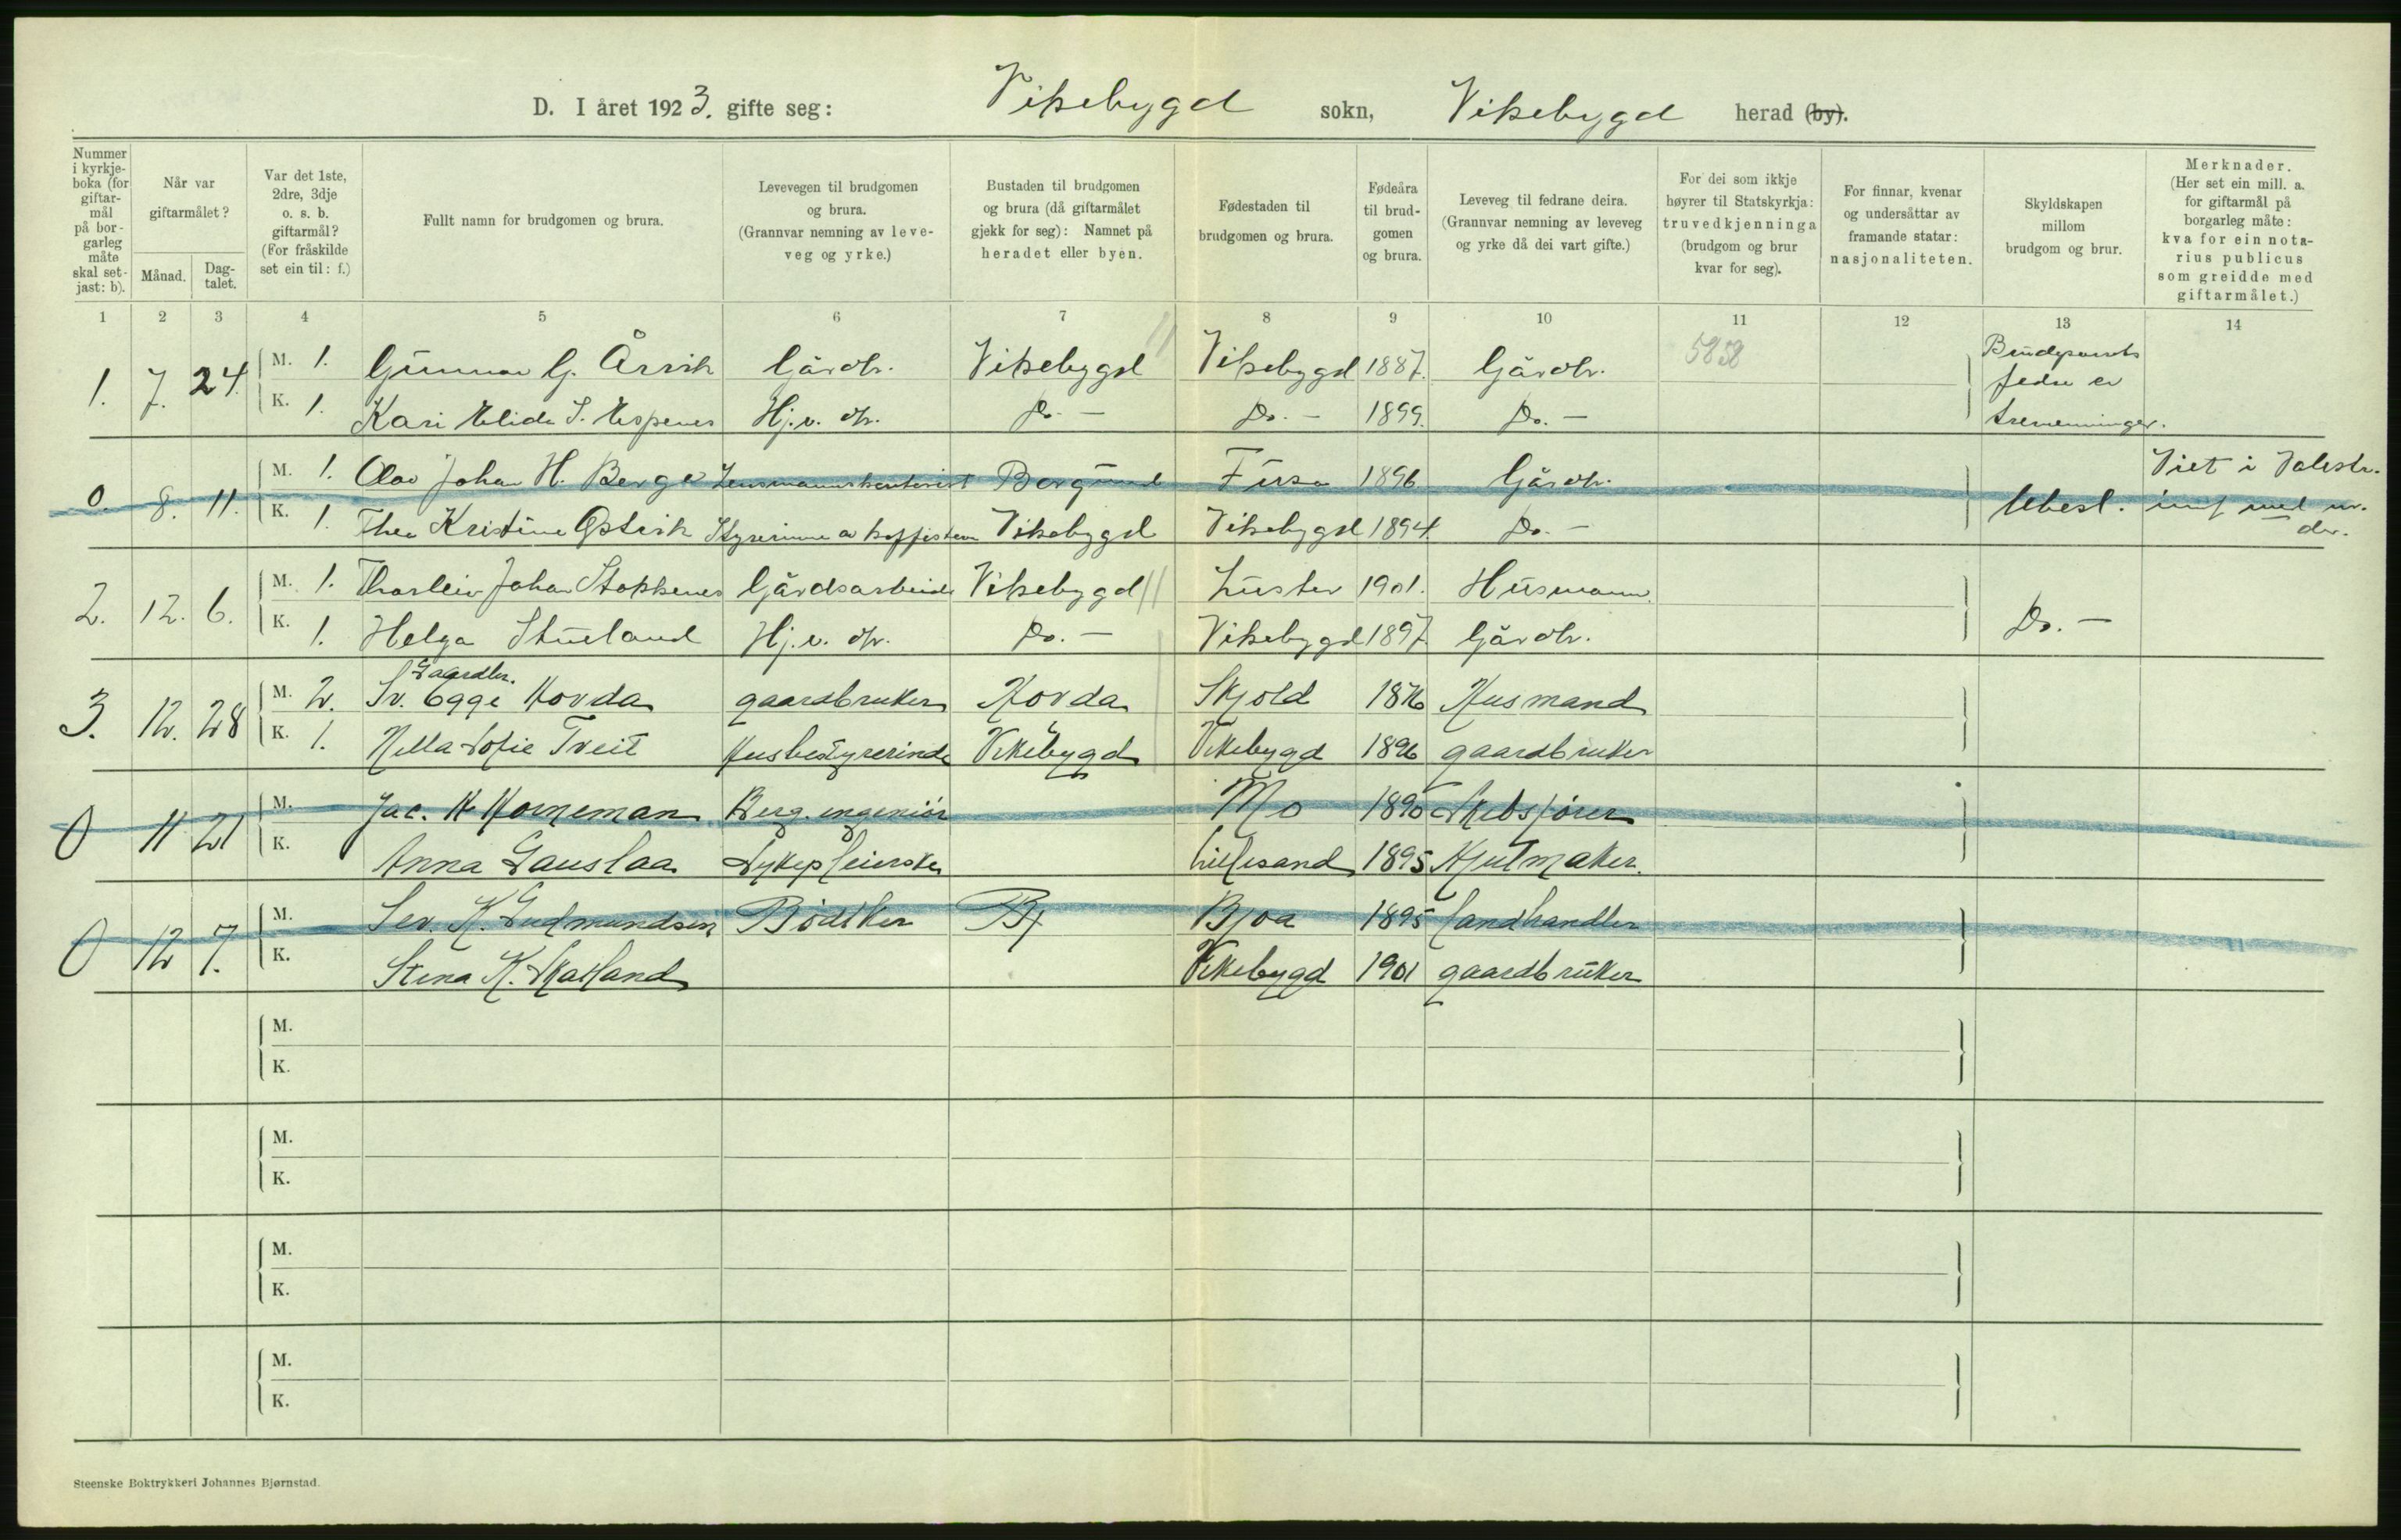 D. I året 1923. gifte seg: Vikebygd sokn, Vikebygd herad (by).
Nummer i kyrkje-boka (for giftar-mål på bor-garleg måte skal set-jast: b).
Når var giftarmålet?
Månad.
Dag-talet.
Var det 1ste, 2dre, 3dje o. s. b. giftarmål? (For fråskilde set ein til: f.)
Fullt namn for brudgomen og brura.
Levevegen til brudgomen og brura. (Grannvar nemning av leve-veg og yrke.)
Bustaden til brudgomen og brura (då giftarmålet gjekk for seg): Namnet på heradet eller byen.
Fødestaden til brudgomen og brura.
Fødeåra til brud-gomen og brura.
Leveveg til fedrane deira. (Grannvar nemning av leveveg og yrke då dei vart gifte.)
For dei som ikkje høyrer til Statskyrkja: truvedkjenninga (brudgom og brur kvar for seg).
For finnar, kvenar og undersåttar av framande statar: nasjonaliteten.
Skyldskapen millom brudgom og brur.
Merknader. (Her set ein mill. a. for giftarmål på borgarleg måte: kva for ein nota-rius publicus som greidde med giftarmålet.)
1 2 3 4 5 6 7 8 9 10 11 12 13 14
1. 7. 24. M. 1. Gunnar G. Årvik Gårdbr. Vikebygd Vikebygd 1887. Gårdbr. 5858 Brudeparets fedre er tremenninger.
K. 1. Kari Elida S. Espenes Hj.v. dtr. Do. — Do. — 1899. Do. —
0. 8. 11. M. 1. Olav Johan H. Berge Lensmannskontorist Borgund Fusa 1896 Gårdbr. Ubesl. Viet i Valestr.
K. 1. Thea Kristine Østvik Styrerinne av kaffistova Vikebygd Vikebygd 1894. Do. —
2. 12. 6. M. 1. Thorleiv Johan Stokkenes Gårdsarbeider Vikebygd Luster 1901. Husmann. Do. —
K. 1. Helga Stueland Hj.v. dtr. Do. — Vikebygd 1897 Gårdbr.
Gaardbr.
3. 12. 28 M. 2. Sv. Egge Hovda gaardbruker Hovda Skjold 1876 Husmand
K. 1. Nilla Sofie Tveit Husbestyrerinde Vikebygd Vikebygd 1896 gaardbruker
0 11 21 M. Jac. K Horneman Berg. ingeniør Mo 1890 Skibsfører
K. Anna Gauslaa Sykepleierske Lillesand 1895 Hjulmaker.
0 12 7. M. Sev. K. Gudmundsen Bødtker Bj Bjoa 1895 landhandler
K. Stina K. Skatland Vikebygd 1901 gaardbruker
M.
K.
M.
K.
M.
K.
M.
K.
Steenske Boktrykkeri Johannes Bjørnstad.